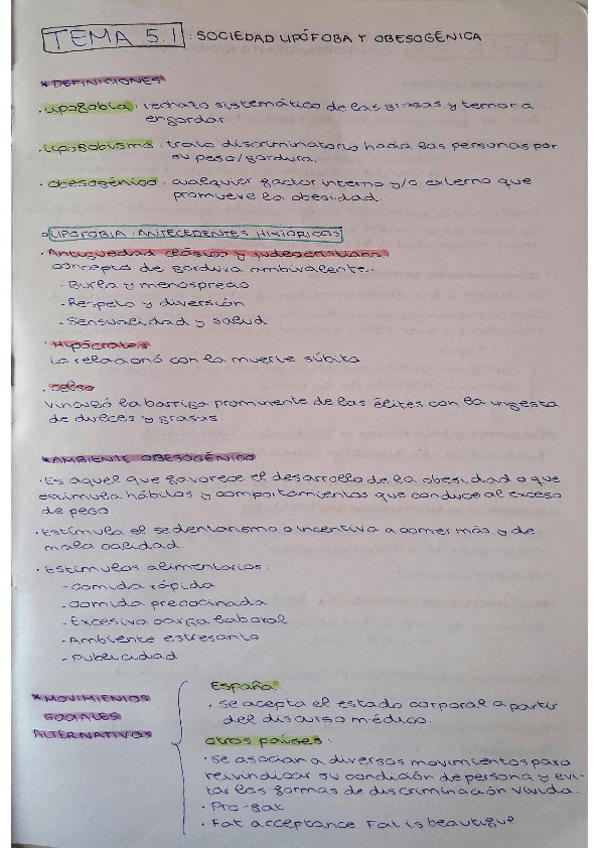 TEMA 5.1: SOCIEDAD LIPÓFOBA Y OBESOGÉNICA
* DEFINICIONES
· Lipofobia: rechazo sistemático de las grasas y temor a
engordar
· Lipofobismo: trato discriminatorio hacia las personas por
su peso/gordura.
· Obesogénico: cualquier factor interno y/o externo que
promueve la obesidad.
LIPOFOBIA: ANTECEDENTES HISTÓRICOS
· Antigüedad clásica y judeocristiana
concepto de gordura ambivalente:
- Burla y menosprecio
- Respeto y diversión
- Sensualidad y salud
· Hipócrates
La relacionó con la muerte súbita
· Celso
Vinculó la barriga prominente de las élites con la ingesta
de dulces y grasas
* AMBIENTE OBESOGÉNICO
· Es aquel que favorece el desarrollo de la obesidad o que
estimula hábitos y comportamientos que conduce al exceso
de peso
· Estimula el sedentarismo o incentiva a comer más y de
mala calidad.
· Estímulos alimentarios:
- comida rápida
- comida precocinada
- Excesiva carga laboral
- Ambiente estresante
- Publicidad
* MOVIMIENTOS
SOCIALES
ALTERNATIVOS
España
· se acepta el estado corporal a partir
del discurso médico.
otros países:
· se asocian a diversos movimientos para
reivindicar su condición de persona y evi-
tar las formas de discriminación vivida.
· Pro-fat
· Fat acceptance Fat is beautigue